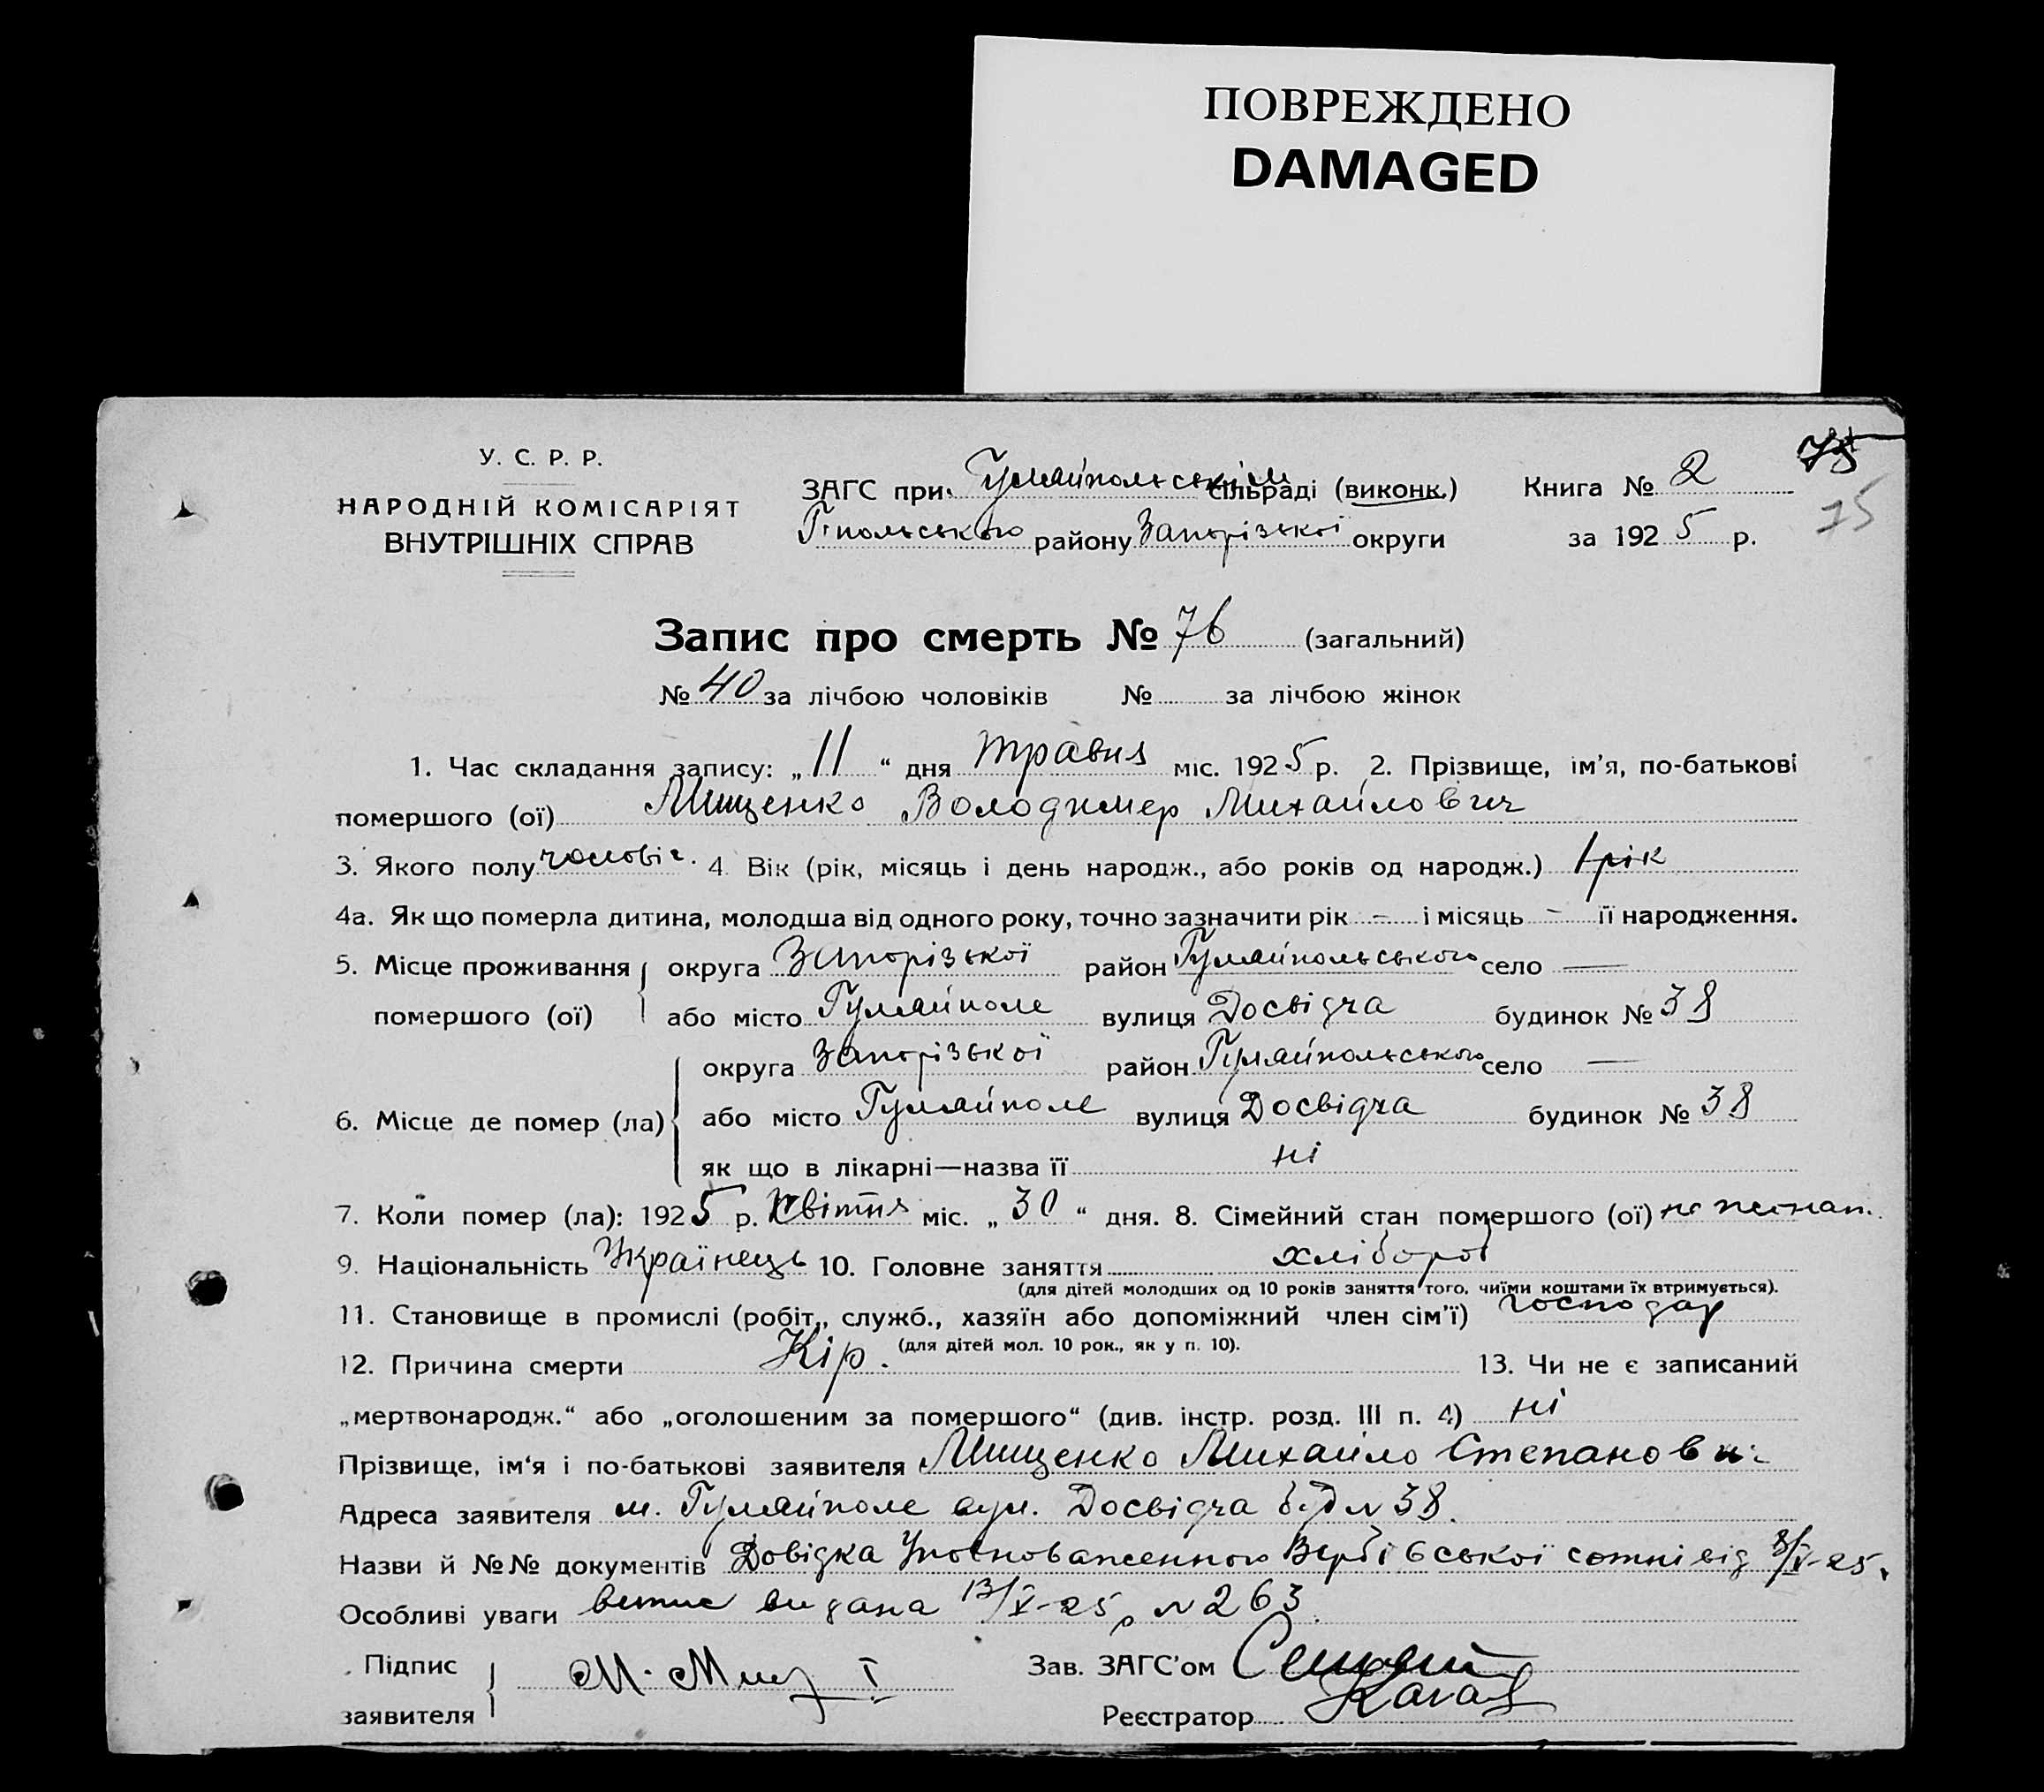 ПОВРЕЖДЕНО
DAMAGED
У. С. Р. Р.
НАРОДНІЙ КОМІСАРІЯТ
ВНУТРІШНІХ СПРАВ
ЗАГС при Гуляйпольськім сільраді (виконк.)
Г-польського району Запорізької округи
Книга № 2
за 1925 р.
75
75
Запис про смерть № 76 (загальний)
№ 40 за лічбою чоловіків № за лічбою жінок
1. Час складання запису: „11“ дня травня міс. 1925 р. 2. Прізвище, ім’я, по-батькові
помершого (ої) Мищенко Володимер Михайлович
3. Якого полу чоловіч. 4. Вік (рік, місяць і день народж., або років од народж.) 1 рік
4а. Як що померла дитина, молодша від одного року, точно зазначити рік – і місяць – її народження.
5. Місце проживання помершого (ої) округа Запорізької район Гуляйпольського село —
або місто Гуляйполе вулиця Досвідча будинок № 38
6. Місце де помер (ла) округа Запорізької район Гуляйпольського село —
або місто Гуляйполе вулиця Досвідча будинок № 38
як що в лікарні—назва її ні
7. Коли помер (ла): 1925 р. Квітня міс. „30“ дня. 8. Сімейний стан помершого (ої) не жонат.
9. Національність Українець 10. Головне заняття хлібороб
(для дітей молодших од 10 років заняття того, чиїми коштами їх втримується).
11. Становище в промислі (робіт., служб., хазяїн або допоміжний член сім’ї) господар
(для дітей мол. 10 рок., як у п. 10).
12. Причина смерти Кір. 13. Чи не є записаний
„мертвонародж.“ або „оголошеним за помершого“ (див. інстр. розд. III п. 4) ні
Прізвище, ім‘я і по-батькові заявителя Мищенко Михайло Степанови
Адреса заявителя м. Гуляйполе вул. Досвідча буд № 38.
Назви й №№ документів Довідка Уповноваженного Вербівської сотні від /V-25.
Особливі уваги видана 13/X-25 р № 263.
Підпис
заявителя М. Мищ
Зав. ЗАГС’ом
Реєстратор